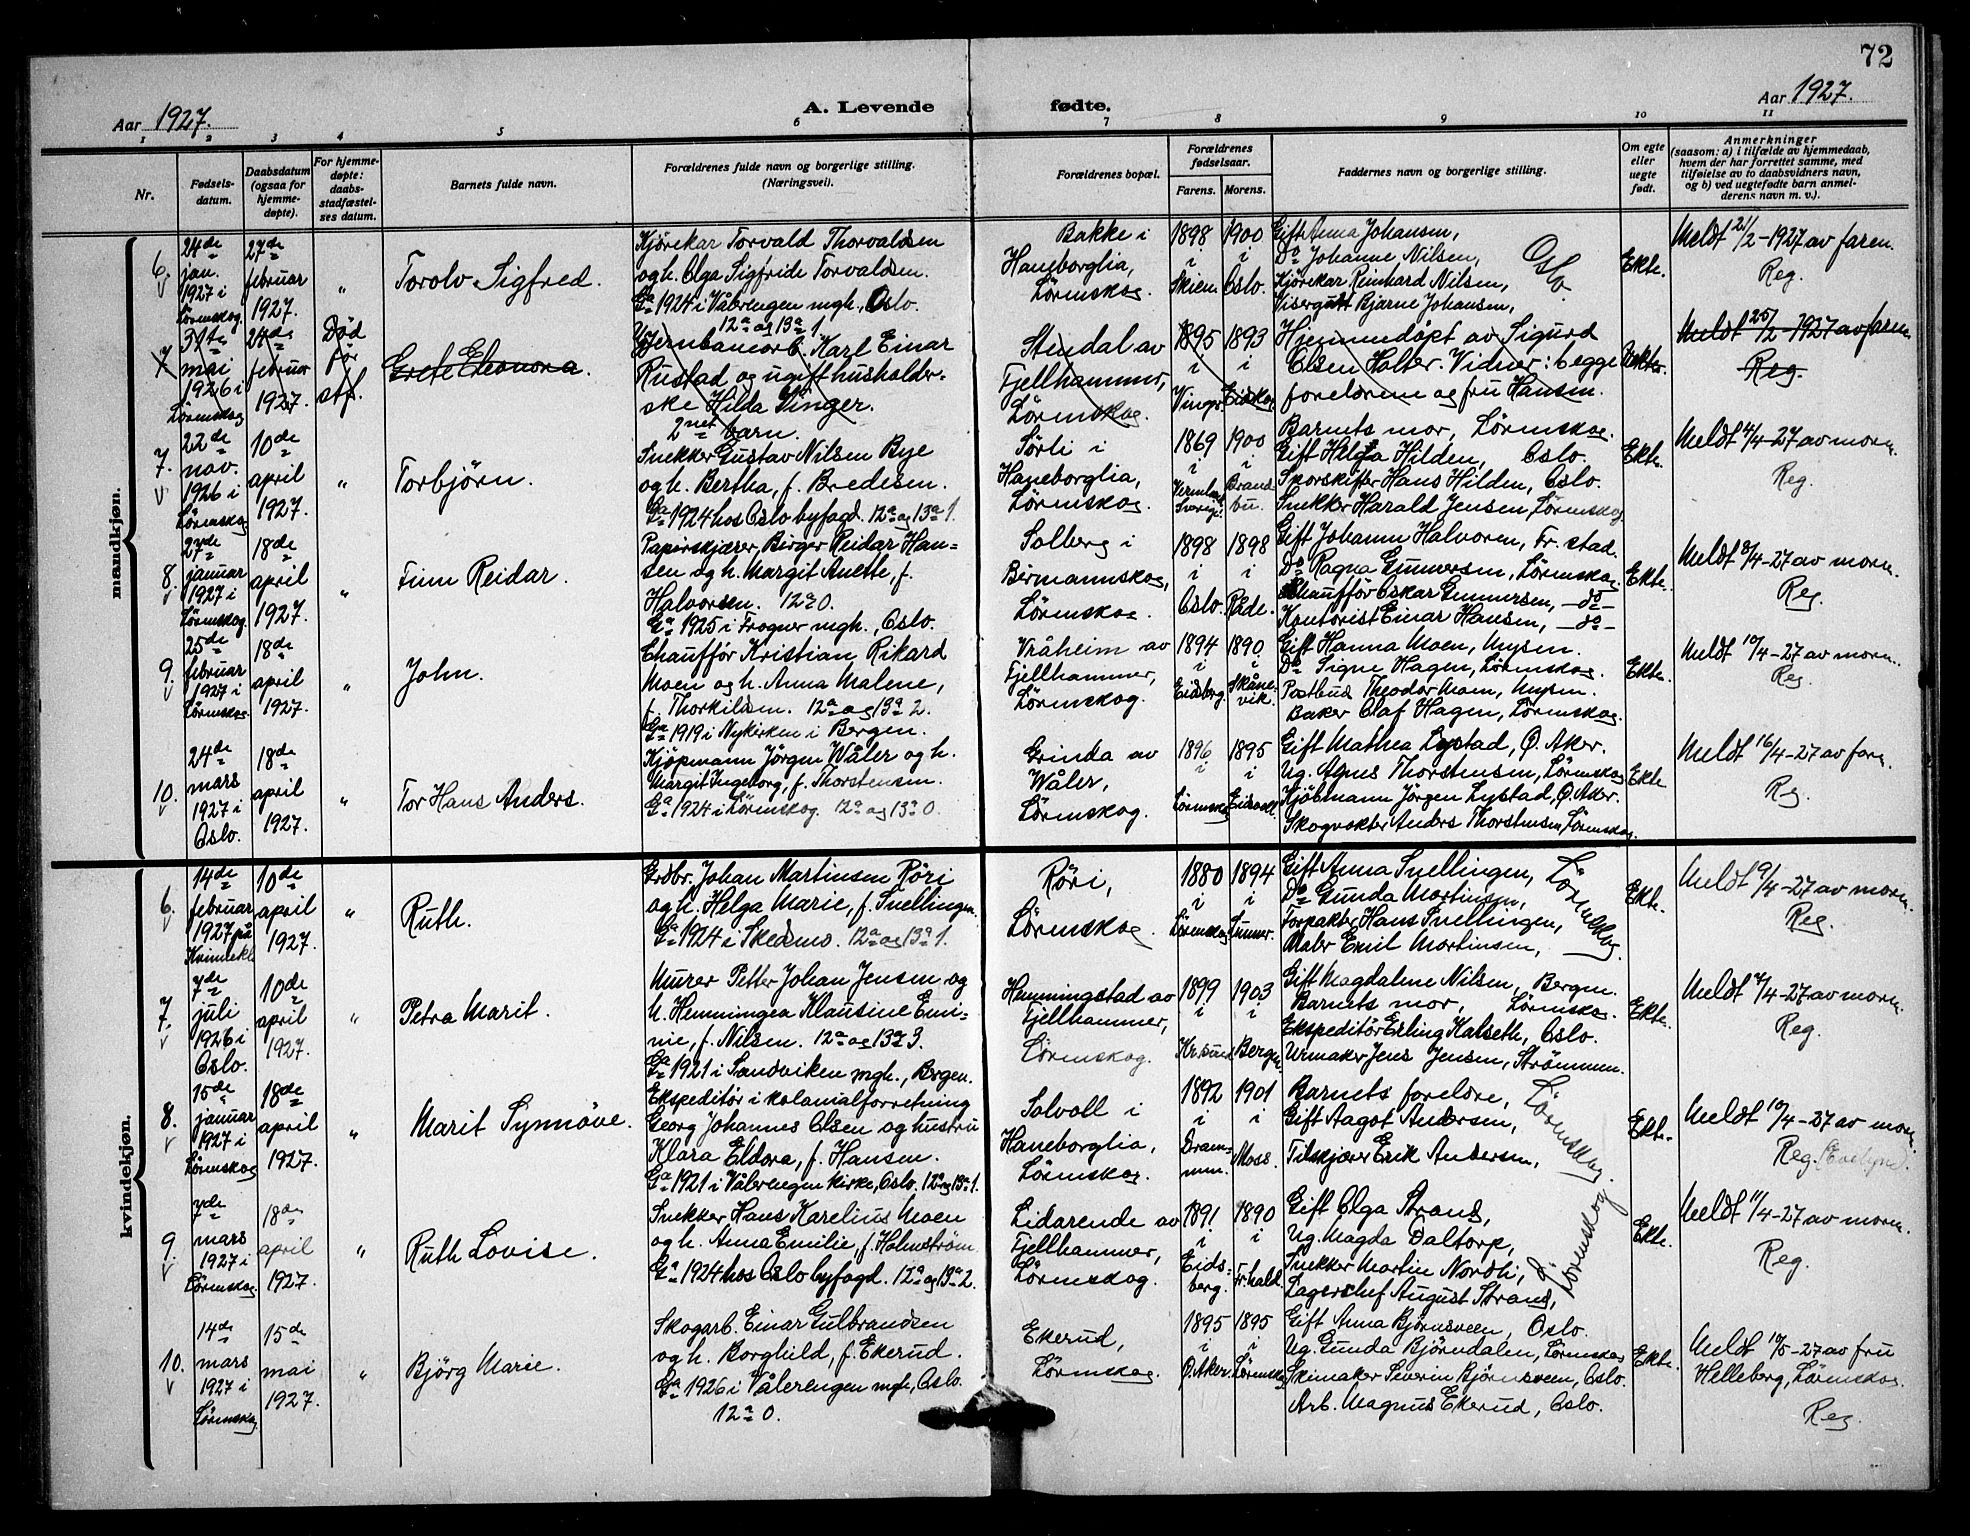 72
Aar 1927.
A. Levende fødte.
Aar 1927.
1 2 3 4 5 6 7 8 9 10 11
Nr.
Fødsels-
datum.
Daabsdatum
(ogsaa for
hjemme-
døpte).
For hjemme-
døpte:
daabs-
stadfæstel-
ses datum.
Barnets fulde navn.
Forældrenes fulde navn og borgerlige stilling.
(Næringsvei).
Forældrenes bopæl.
Forældrenes
fødselsaar.
Farens. Morens.
Faddernes navn og borgerlige stilling.
Om egte
eller
uegte
født.
Anmerkninger
(saasom: a) i tilfælde av hjemmedaab,
hvem der har forrettet samme, med
tilføielse av to daabsvidners navn,
og b) ved uegtefødte barn anmel-
derens navn m. v.).
mandkjøn.
6.
24de
jan.
1927 i
Lörenskog.
27de
februar
1927.
"
Torolv Sigfred.
Kjörekar Torvald Thorvaldsen
og h. Olga Sigfride Torvaldsen.
Ga 1924 i Vålerengen mgh., Oslo.
12a og 13a 1.
Bakke i
Haneborglia,
Lörenskog.
1898
i
Skien.
1900
i
Oslo.
Gift Anna Johansen,
Do Johanne Nilsen,
Kjörekar Reinhard Nilsen,
Visergutt Bjarne Johansen,
Oslo.
Ekte.
Meldt 21/2-1927 av faren.
Reg.
7
31te
mai
1926 i
Lörenskog
24de
februar
1927.
Död
för
stf.
Grete Eleonora.
Jernbanearb. Karl Einar
Rustad og ugift husholder-
ske Hilda Vinger.
2net barn.
Stendal av
Fjellhammer,
Lörenskog.
1895
i
Vinger
1893
i
Eidskog
Hjemmedöpt av Sigurd
Olsen Holter. Vidner: begge
foreldrene og fru Hansen.
Uekte.
Meldt 25/2-1927 av faren
Reg.
7.
22de
nov.
1926 i
Lörenskog
10de
april
1927.
"
Torbjörn.
Snekker Gustav Nilsen Bye
og h. Bertha, f. Bredesen.
Ga 1924 hos Oslo byfogd. 12a og 13a 1.
Sörli i
Haneborglia,
Lörenskog.
1869
i
Vermland
Sverige.
1900
i
Brand-
bu.
Barnets mor, Lörenskog.
Gift Helga Hilden, Oslo.
Sporskifter Hans Hilden, Oslo.
Snekker Harald Jensen, Lörenskog
Ekte.
Meldt 4/4-27 av moren.
Reg.
8.
27de
januar
1927 i
Lörenskog.
18de
april
1927.
"
Finn Reidar.
Papirskjærer, Birger Reidar Han-
sen og h. Margit Anette, f.
Halvorsen. 12a 0.
Ga 1925 i Frogner mgh., Oslo.
Solberg i
Birmannskog,
Lörenskog.
1898
i
Oslo.
1898
i
Råde.
Gift Johanne Halvorsen, Fr. stad.
Do Ragna Gunnersen, Lörenskog.
Chaufför Oskar Gunnersen, —do—
Kontorist Einar Hansen, —do—
Ekte.
Meldt 8/4-27 av moren.
Reg.
9.
25de
februar
1927 i
Lörenskog.
18de
april
1927.
"
John.
Chaufför Kristian Rikard
Moen og h. Anna Malene,
f. Thorkildsen. 12a og 13a 2.
Ga 1919 i Nykirken i Bergen.
Vråheim av
Fjellhammer,
Lörenskog.
1894
i
Eidsberg.
1890.
i
Skåne-
vik.
Gift Hanna Moen, Mysen.
Do Signe Hagen, Lörenskog.
Postbud Theodor Moen, Mysen.
Baker Olaf Hagen, Lörenskog.
Ekte.
Meldt 10/4-27 av moren.
Reg.
10.
24de
mars
1927 i
Oslo.
18de
april
1927.
"
Tor Hans Anders.
Kjöpmann Jörgen Wåler og h.
Margit Ingeborg, f. Thorstensen.
Ga 1924 i Lörenskog. 12a og 13a 0.
Grinda av
Wåler,
Lörenskog.
1896
i
Lörenskog
1895
i
Gift Mathea Lystad, Ö. Aker.
Ug. Agnes Thorstensen, Lörenskog
Kjöbmann Jörgen Lystad, Ö. Aker.
Skogvokter Anders Thorstensen, Lörenskog.
Ekte
Meldt 16/4-27 av faren.
Reg.
kvindekjøn.
6.
14de
februar
1927 på
Kvinnekl.
10de
april
1927.
"
Ruth.
Grdbr. Johan Martinsen Röri
og h. Helga Marie, f. Snellingen.
Ga 1924 i Skedsmo. 12a og 13a 1.
Röri,
Lörenskog.
1880
i
Lörenskog
1894
i
Lunner.
Gift Anna Snellingen,
Do Gunda Martinsen,
Forpakter Hans Snellingen,
Maler Emil Martinsen,
Lörenskog.
Ekte.
Meldt 9/4-27 av moren.
Reg.
7.
7de
juli
1926 i
Oslo.
10de
april
1927.
"
Petra Marit.
Murer Petter Johan Jensen og
h. Hemmingea Klausine Emi-
nie, f. Nilsen. 12a og 13a 3.
Ga 1921 i Sandviken mgh., Bergen.
Hemmingstad av
Fjellhammer,
Lörenskog.
1899
i
Kr.sund
1903
i
Bergen.
Gift Magdalene Nilsen, Bergen.
Barnets mor, Lörenskog.
Ekspeditör Erling Kalseth, Oslo.
Urmaker Jens Jensen, Strömmen.
Ekte.
Meldt 7/4-27 av moren.
Reg.
8.
15de
januar
1927 i
Lörenskog
18de
april
1927.
"
Marit Synnöve.
Ekspeditör i kolonialforretning
Georg Johannes Olsen og hustru
Klara Eldora, f. Hansen.
Ga 1921 i Vålerengen kirke, Oslo. 12a og 13a 1.
Solvoll i
Haneborglia,
Lörenskog.
1892
i
Dram-
men.
1901
i
Moss.
Barnets foreldre,
Gift Aagot Andersen,
Tilskjærer Erik Andersen,
Lörenskog.
Ekte.
Meldt 10/4-27 av moren
Reg. (Evelyn).
9.
7de
mars
1927 i
Lörenskog.
18de
april
1927.
"
Ruth Lovise.
Snekker Hans Karelius Moen
og h. Anna Emilie, f. Holmström.
Ga 1924 hos Oslo byfogd. 12a og 13a 2.
Lidarende av
Fjellhammer,
Lörenskog.
1891
i
Eids-
berg.
1890
i
Fr.hald.
Gift Olga Strand,
Ug. Magda Daltorp,
Snekker Martin Nordli,
Lagerchef August Strand,
Lörenskog
Ekte.
Meldt 11/4-27 av moren.
Reg.
10.
14de
mars
1927 i
Lörenskog
15de
mai
1927.
"
Björg Marie.
Skogarb. Einar Gulbrandsen
og h. Borghild, f. Ekerud.
Ga 1926 i Vålerengen mgh., Oslo.
12a 0.
Ekerud,
Lörenskog.
1895
i
Ö. Aker.
1895
i
Lörenskog
Gift Anna Björnsveen, Oslo.
Ug. Gunda Björndalen, Lörenskog
Skimaker Severin Björnsveen, Oslo.
Arb. Magnus Ekerud, Oslo.
Ekte.
Meldt 10/5-27 av fru
Helleberg, Lörenskog.
Reg.